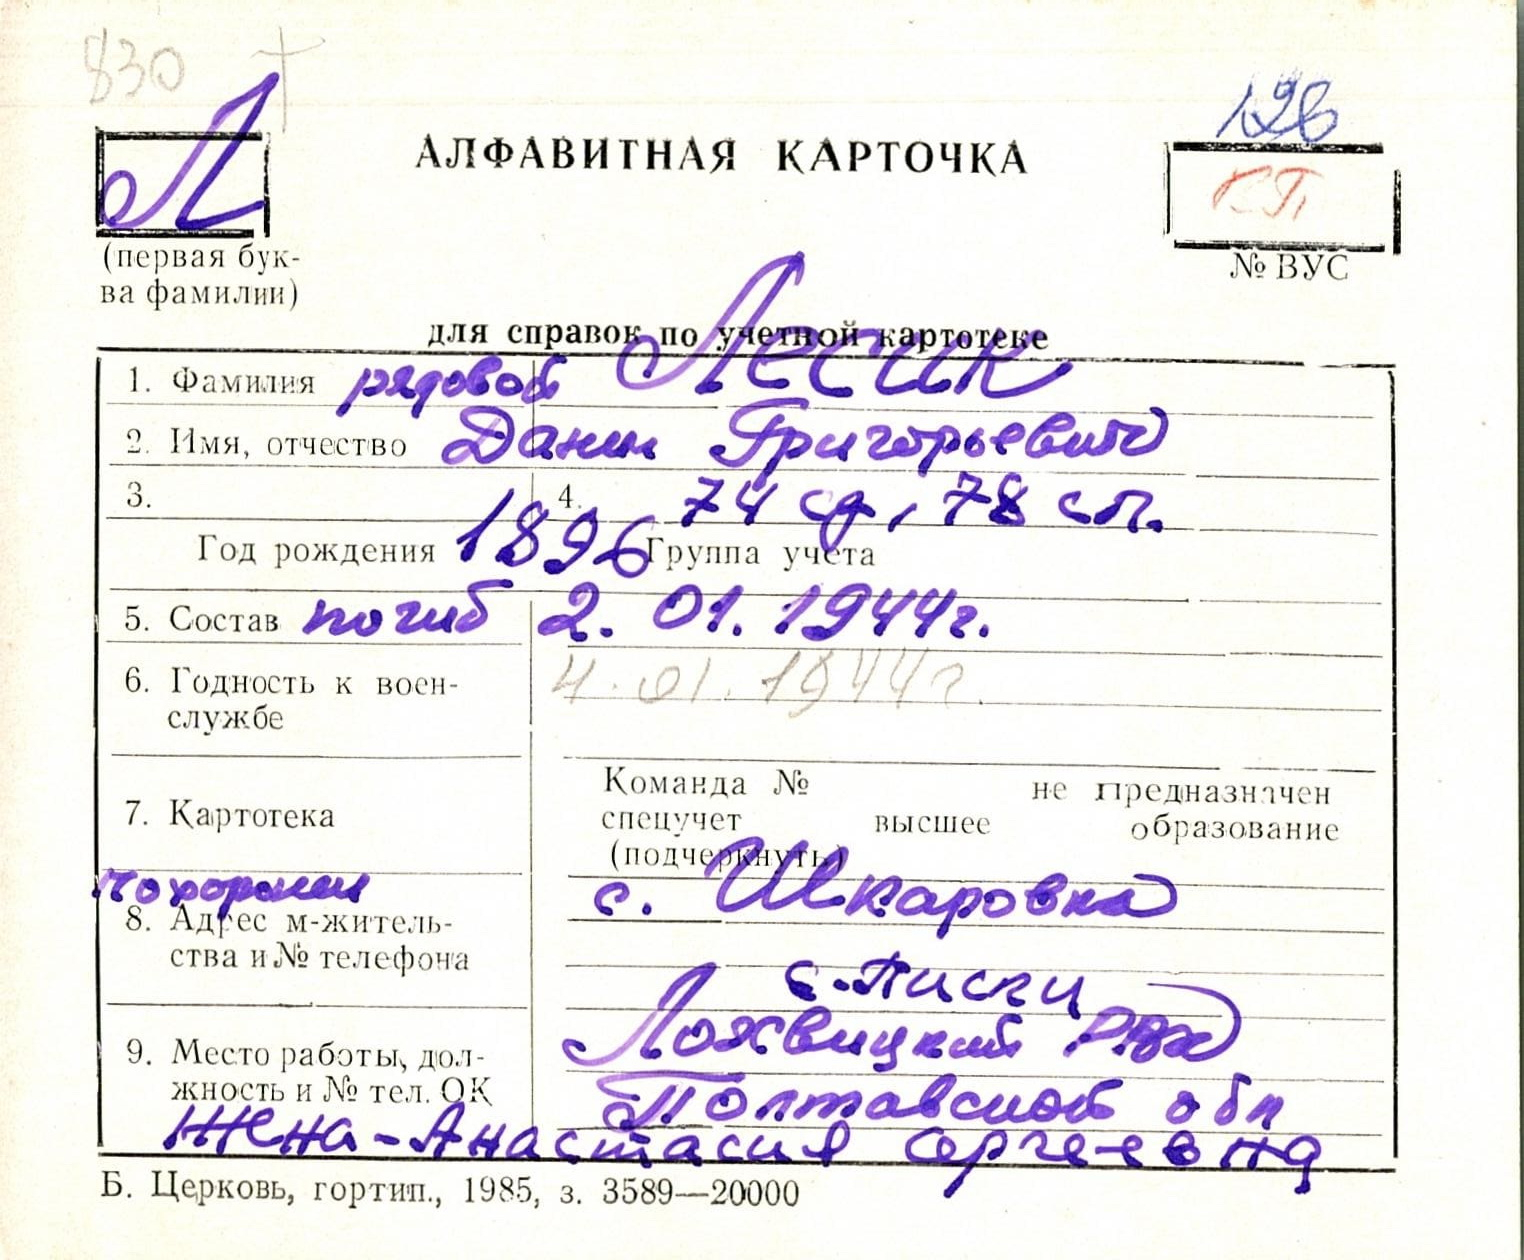 830
126
Л
АЛФАВИТНАЯ КАРТОЧКА
КП
(первая бук-
ва фамилии)
№ ВУС
для справок по учетной картотеке
1. Фамилия рядовой Лесик
2. Имя, отчество Данил Григорьевич
3. 4. 74 сд, 78 сп.
Год рождения 1896 Группа учета
5. Состав погиб 2. 01. 1944г.
6. Годность к воен-
службе
4. 01. 1944г.
7. Картотека
Команда № не предназначен
спецучет высшее образование
(подчеркнуть)
похоронен с. Шкаровка
8. Адрес м-житель-
ства и № телефона
с. Писки
Лохвицкий РВК
9. Место работы, дол-
жность и № тел. ОК
Полтавской обл
Жена - Анастасия Сергеевна
Б. Церковь, гортип., 1985, з. 3589—20000